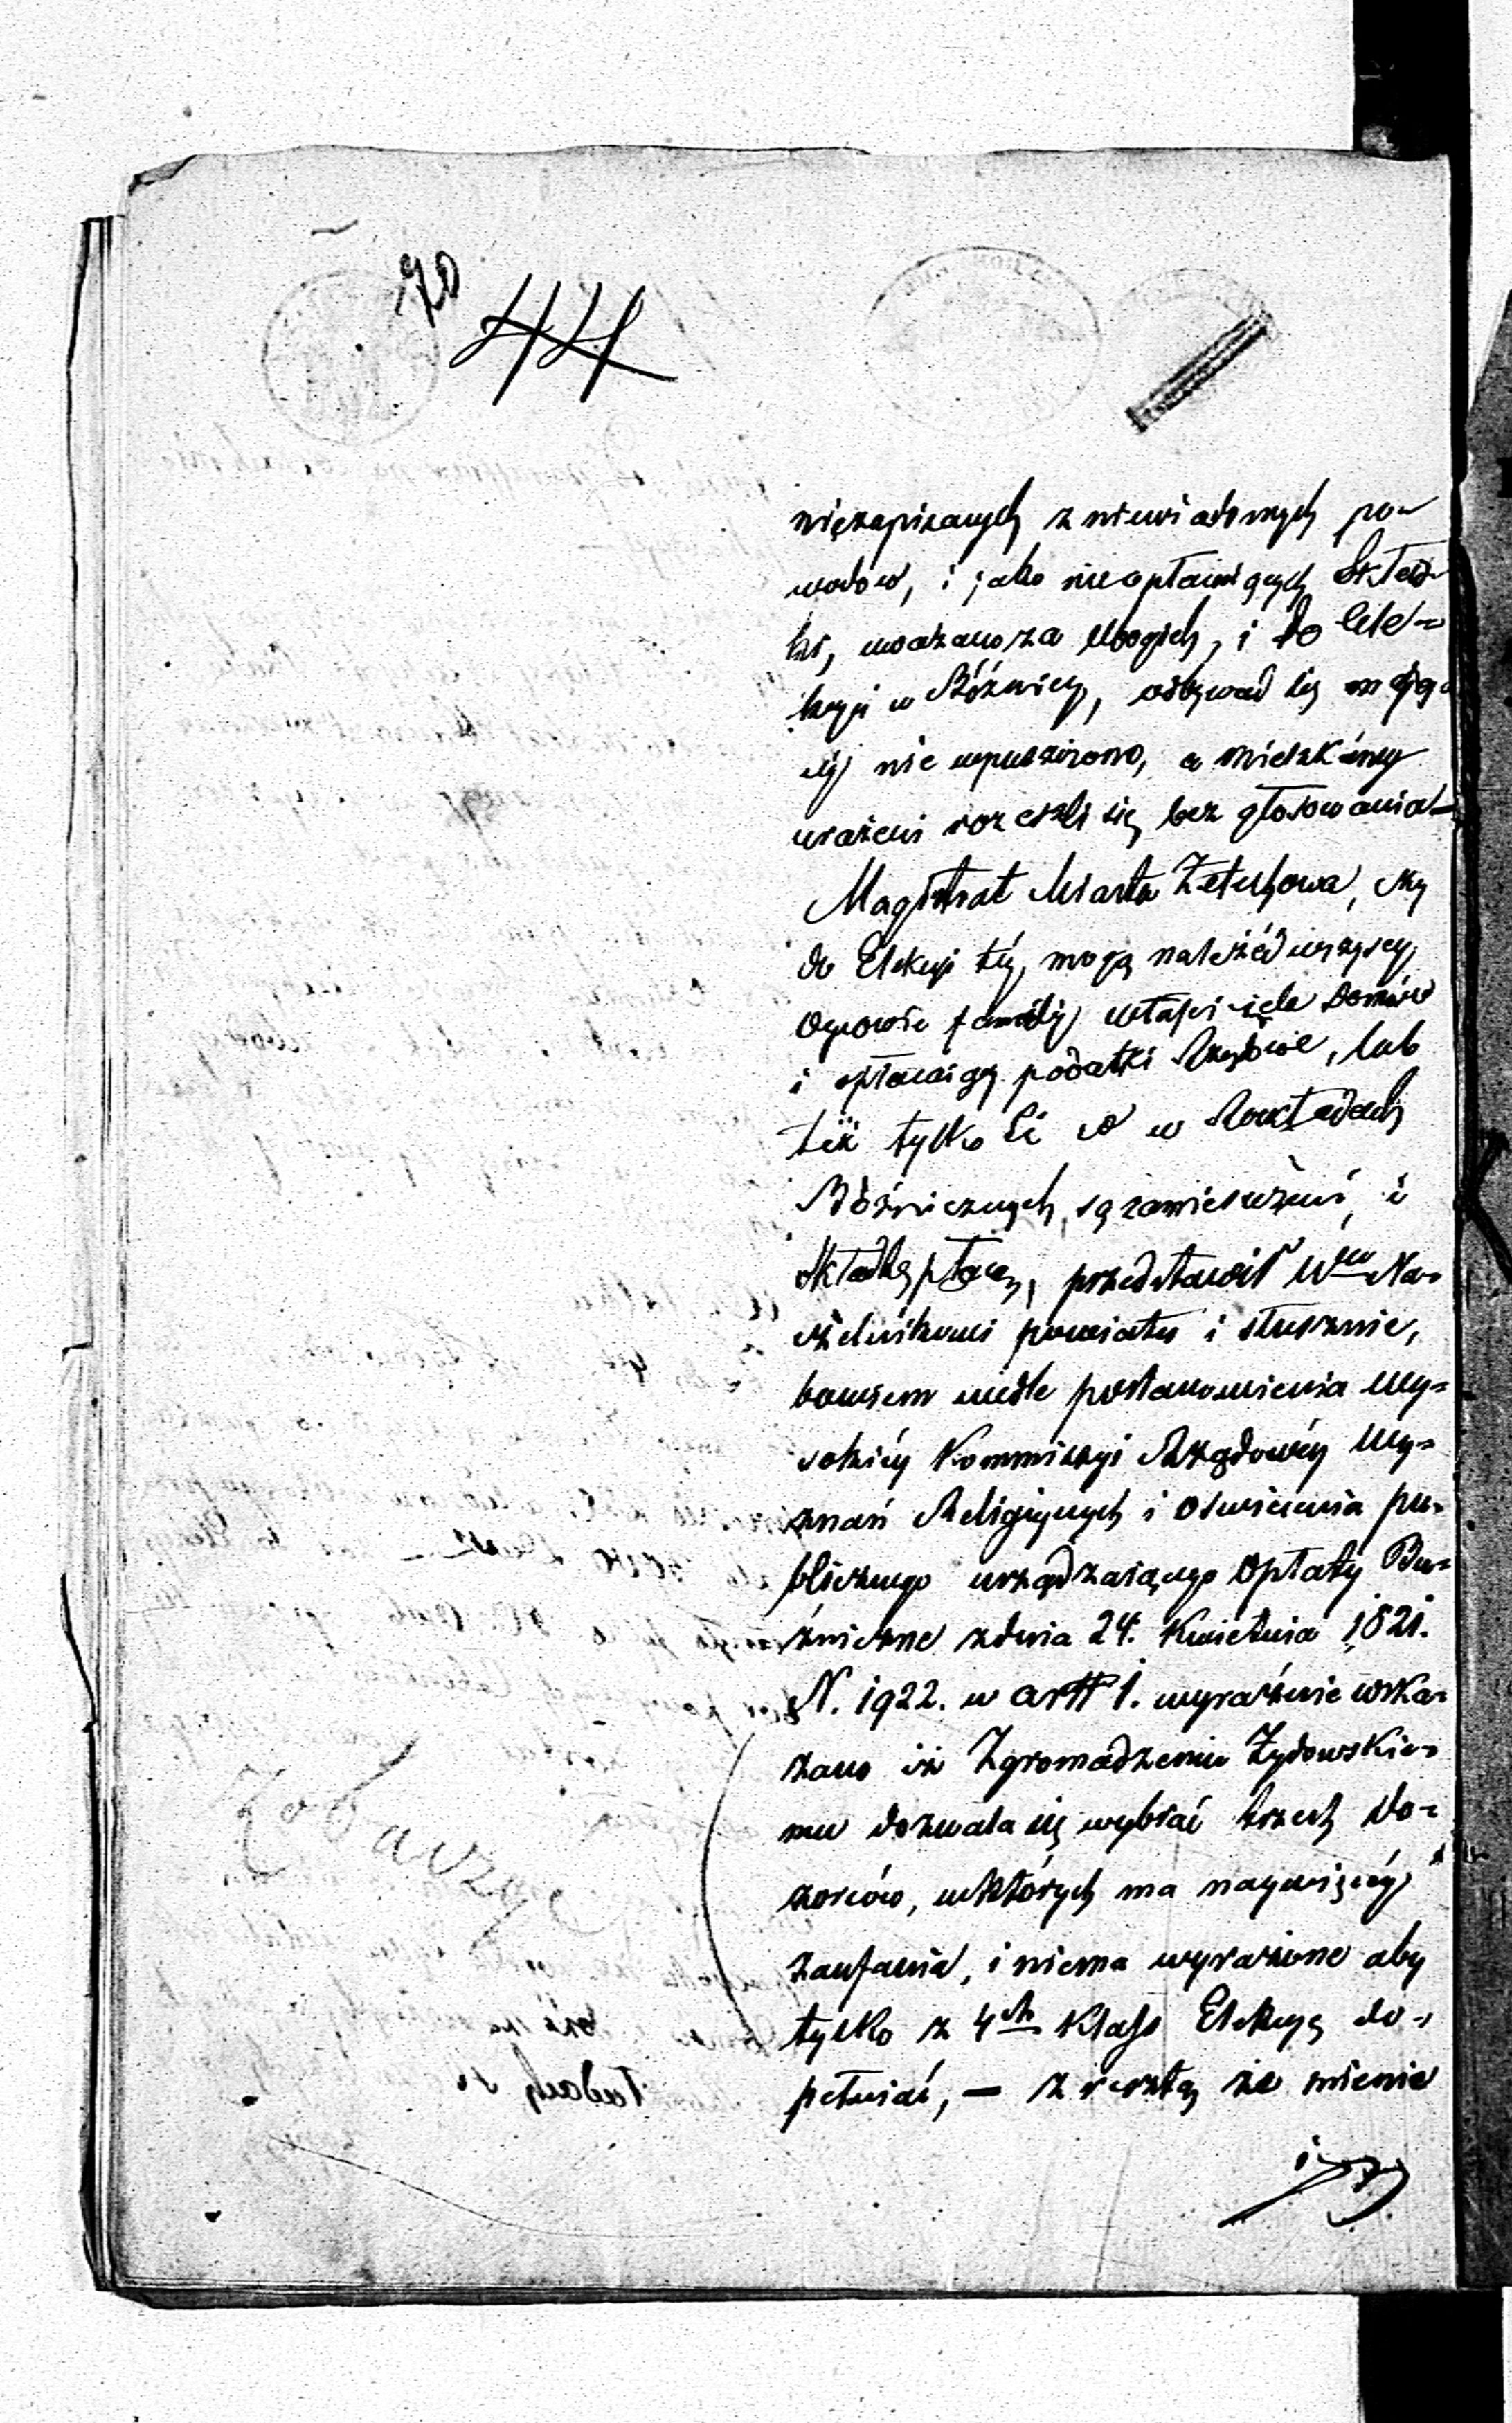 70
44
niezapisanych z niewiadomych po-
wodow, i jako nieopłacaiących Skład-
ki, uważano za ubogich, i do Ele-
kcyi w Bóźnicy, odbywać się maią-
céy nie wpuszczono, a mieszkańcy
urażeni rozeszli się bez głosowania –
Magistrat Miasta Żelechowa, czy
do Elekcyi téy, mogą należéć wszyscy
Oycowie familij właściciele Domów
i opłacaiący podatki Rządowe, lub
téż tylko Ci co w Rozkładach
Bóźnicznych są zamieszczeni, i
składkę płacą, przedstawił Wmu Na-
czelnikowi powiatu i słusznie,
bowiem wedle postanowienia Wy-
sokiéy Kommissyi Rządowéy Wy-
znań Religiynych i Oświecenia pu-
blicznego urządzaiącego Opłaty Bó-
źniczne z dnia 24. Kwietnia 1821.
N. 1922. w art 1. wyraźnie wska-
zano iż Zgromadzeniu Żydowskie-
mu dozwala się wybrać trzech Do-
zorców, w których ma naywięcéy
zaufania, i niema wyrażone aby
tylko z 4ch Klass Elekcyą do-
pełniać, — zresztą że mienie
Zobaczyć